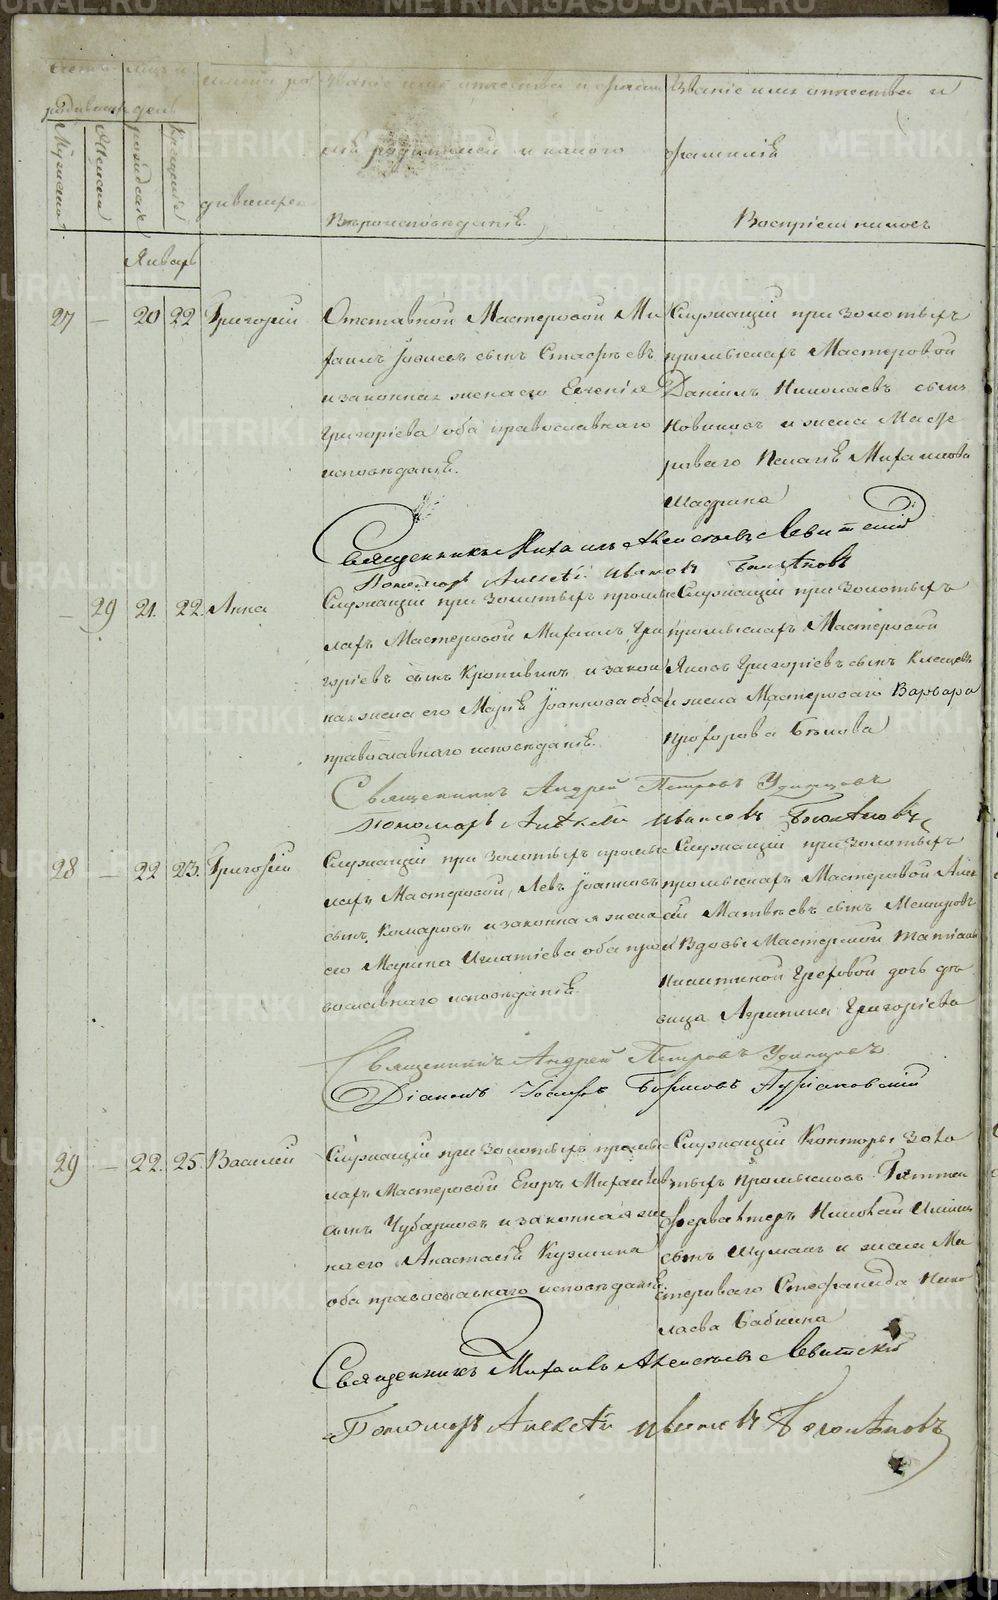 Счетъ
родивших
Мужеска
Женска
день
рожденiя
крещенiя
Имена ро
дившихся
Званiе имя отчества и фамилiя
ихъ родителей и какого
Вѣроисповѣданiя
Званiе имя отчества и
фамилiя
Воспрiемниковъ
Январь
27 — 20 22 Григорий
Отставной Мастеровой Ми
хаилъ сынъ
и законная жена его Евгенiя
Григорiева оба православнаго
исповѣданiя.
Служащiй при золотыхъ
промыслахъ Мастеровой
Данiилъ Николаевъ сынъ
Новиковъ и жена Масте
роваго Пелагiя Михаилова
Шадрина
Священникъ Михаилъ Алексѣевъ Левитскiй
Пономарь Алексѣй Ивановъ
— 29 21. 22. Анна
Служащiй при Золотыхъ промыс
лахъ Мастеровой Михаилъ Гри
горiевъ сынъ Кропивинъ и закон
ная жена его Марiя Iоаннова оба
православнаго исповѣданiя.
Служащiй при Золотыхъ
промыслахъ Мастеровой
Яковъ Григорiевъ сынъ Клещевъ
и жена Мастероваго Варвара
Прохорова Бѣлова
Священникъ Андрей Петровъ Удинцовъ
пономарь Алексѣй Ивановъ
28 — 22 23. Григорiй
Служащiй при Золотыхъ промыс
лахъ Мастеровой Левъ Iоанновъ
сынъ Комаровъ и законная жена
его Марина Игнатiева оба пра
вославнаго исповѣданiя
Служащiй при Золотыхъ
промыслахъ Мастеровой Алек
сѣй Матвѣевъ сынъ
и Вдовы Мастерской Татiаны
Никитиной дочь дѣ
вица Агрипина Григорiева
Священникъ Андрей Петровъ Удинцовъ
Дiаконъ Iосифъ Борисовъ
29 — 22. 25. Василей
Служащiй при Золотыхъ промыс
лахъ Мастеровой Егоръ Михаиловъ
сынъ Чубаровъ и законная же
на его Анастасiя Кузмина
оба православнаго исповѣданiя.
Служащiй Конторы Золо
тыхъ Промысловъ Гиттен
фервалтеръ Николай Ильинъ
сынъ Шуманъ и жена Ма
стероваго Стефанида Нико
лаева Бабкина
Священникъ Михаилъ Алексѣевъ Левитскiй
Пономарь Алексѣй Ивановъ
METRIKI.GASO-URAL.RU